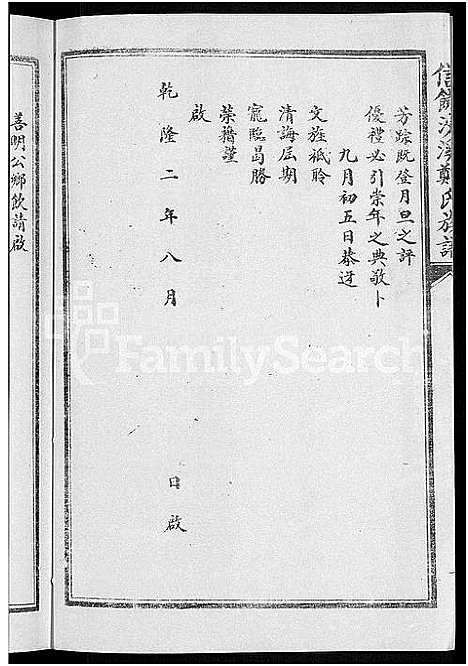 芳踪既登月旦之評
優禮必引崇年之典敬卜
九月初五日恭迓
文旌祗聆
清誨屆期
寵臨曷勝
榮藉謹
啟
乾隆二年八月 日啟
善明公鄉飲請啟
FamilySearch